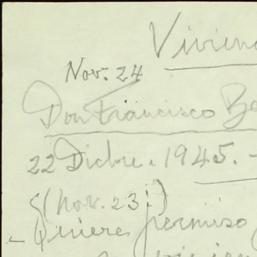 Vivien
Nov. 24
Don Francisco Ba
22 Dicbre. 1945. -
(Nov. 23:)
- Quiere permiso